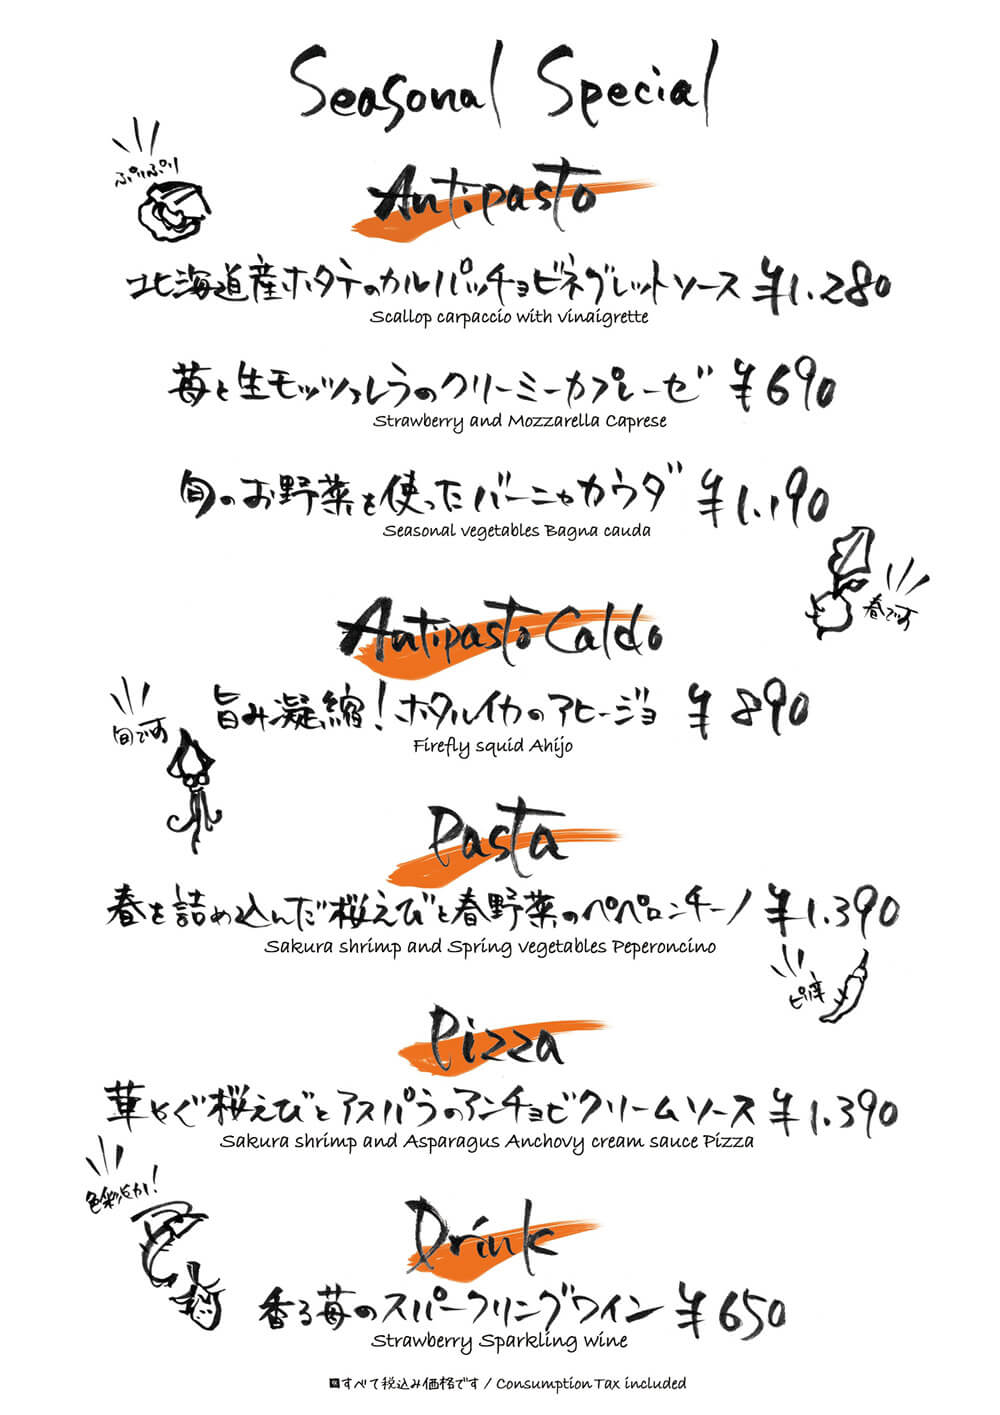 Seasonal Special
ぷりぷり
Antipasto
北海道産ホタテのカルパッチョビネグレットソース ¥1.280
Scallop carpaccio with vinaigrette
苺と生モッツァレラのクリーミーカプレーゼ ¥690
Strawberry and Mozzarella Caprese
旬のお野菜を使ったバーニャカウダ ¥1.190
Seasonal vegetables Bagna cauda
春です
Antipasto Caldo
旨み凝縮!ホタルイカのアヒージョ ¥890
Firefly squid Ahijo
旬です
Pasta
春を詰め込んだ桜えびと春野菜のペペロンチーノ ¥1.390
Sakura shrimp and Spring vegetables Peperoncino
ピリ辛
Pizza
華やぐ桜えびとアスパラのアンチョビクリームソース ¥1.390
Sakura shrimp and Asparagus Anchovy cream sauce Pizza
Drink
香る苺のスパークリングワイン ¥650
Strawberry Sparkling wine
すべて税込み価格です / Consumption Tax included